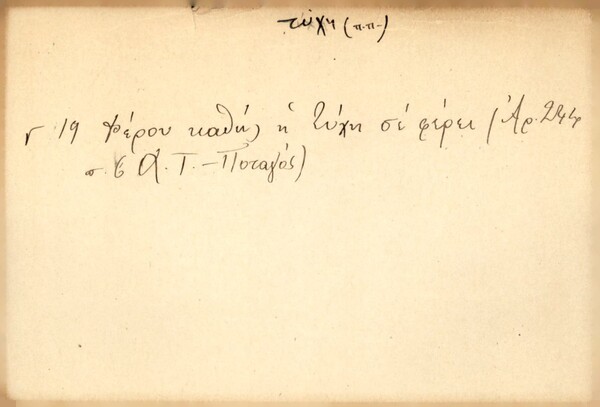 τύχη (π.π.)
γ 19 Φέρου καθώς ἡ τύχη σέ φέρει (Ἀρ. 244
σ. 6 Α. Τ. – Ποταγός)